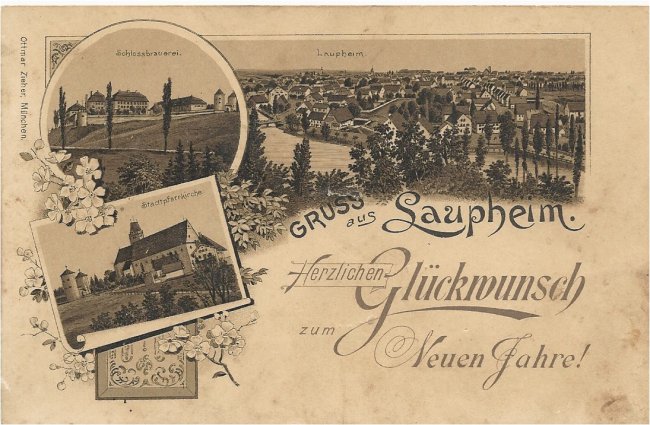 Ottmar Zieher, München.
Schlossbrauerei.
Laupheim.
Stadtpfarrkirche.
GRUSS aus Laupheim.
Herzlichen Glückwunsch
zum
Neuen Jahre!